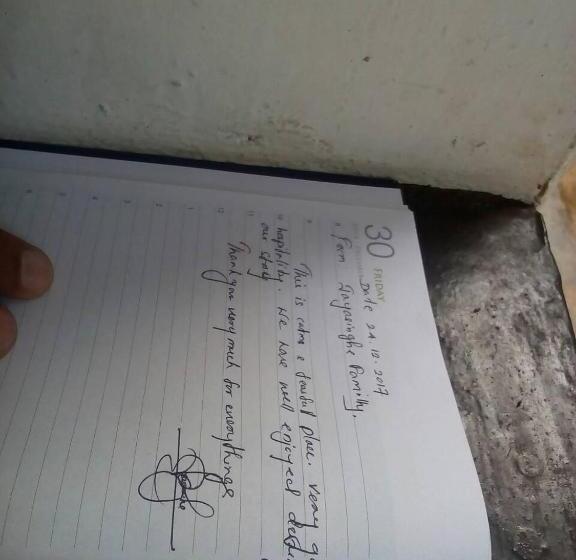 30 FRIDAY
Date 24.12.2017
8 Form Jayasinghe Family.
9
This is calm & place. very
10 hapitality. We have well enjoyed
11 our stay
12 Thank you very much for everythings
1
2
3
4
5
6